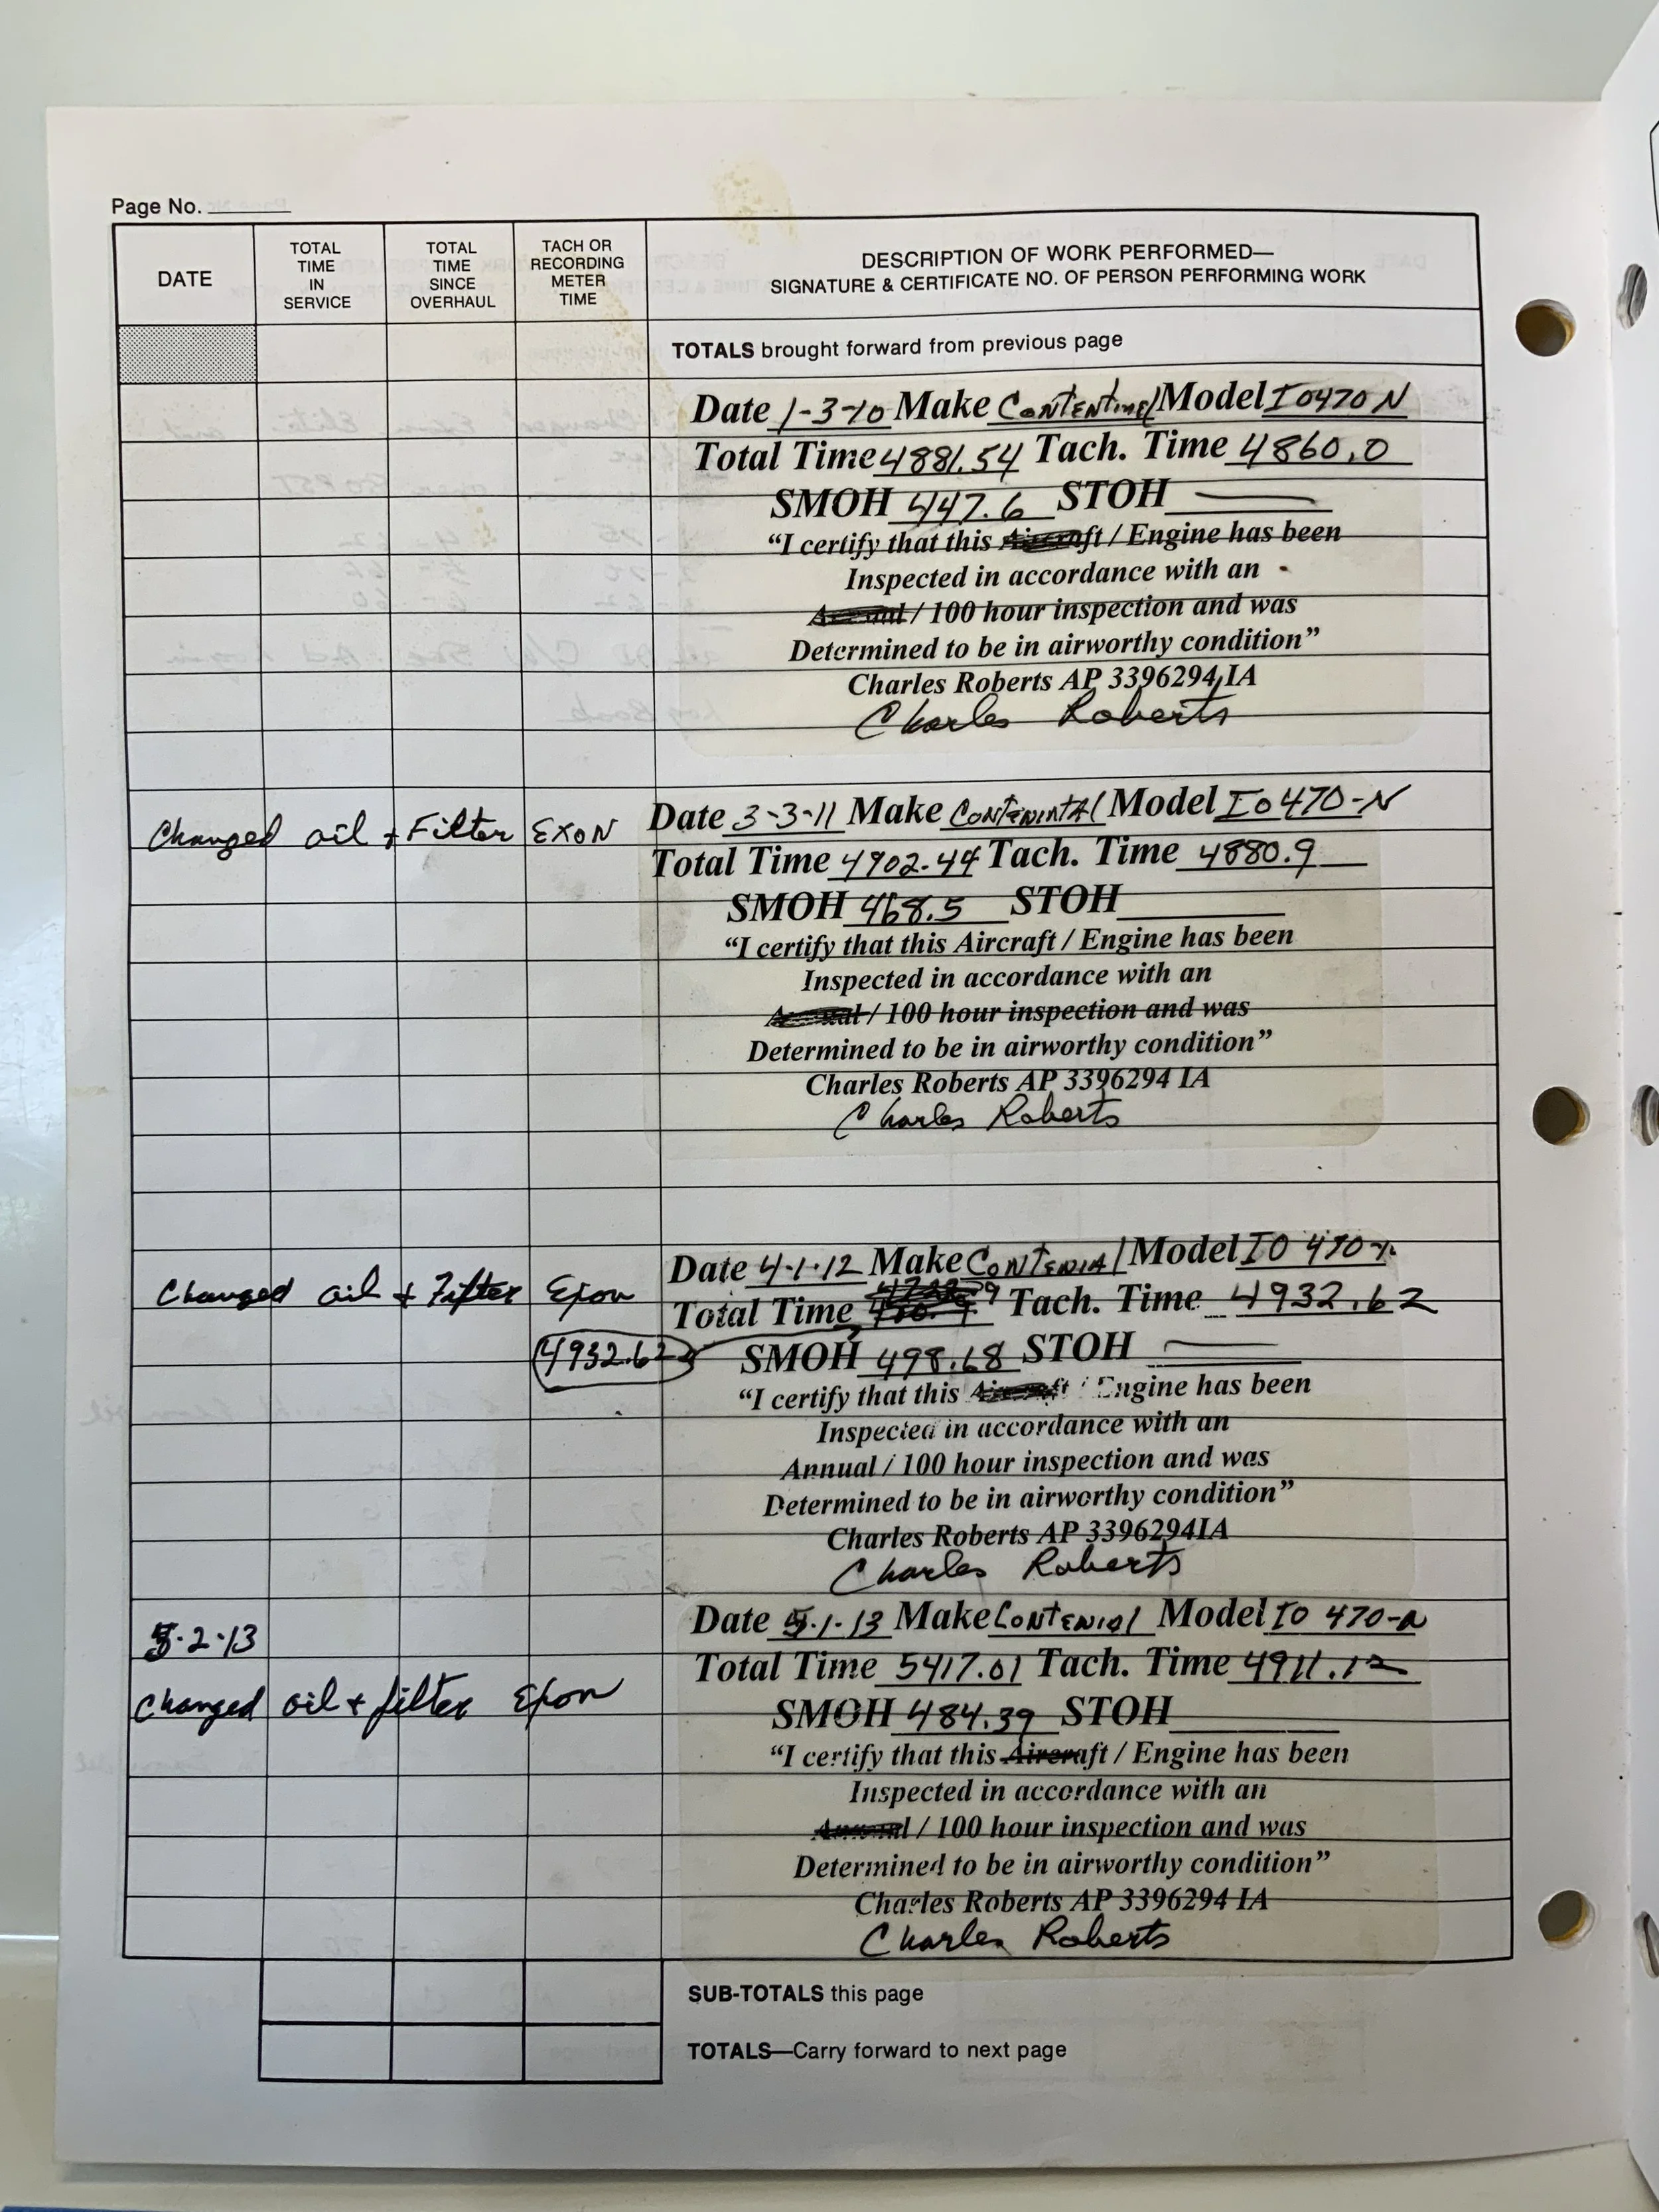 Page No.
DATE
TOTAL TIME IN SERVICE
TOTAL TIME SINCE OVERHAUL
TACH OR RECORDING METER TIME
DESCRIPTION OF WORK PERFORMED—
SIGNATURE & CERTIFICATE NO. OF PERSON PERFORMING WORK
TOTALS brought forward from previous page
Date 1-3-10 Make Model IO470 N
Total Time 4881.54 Tach. Time 4860.0
SMOH 447.6 STOH
“I certify that this Aircraft / Engine has been
Inspected in accordance with an
Annual / 100 hour inspection and was
Determined to be in airworthy condition”
Charles Roberts AP 3396294 IA
Charles Roberts
Changed oil + Filter EXON
Date 3-3-11 Make Model IO470-N
Total Time 4902.44 Tach. Time 4880.9
SMOH 468.5 STOH
“I certify that this Aircraft / Engine has been
Inspected in accordance with an
Annual / 100 hour inspection and was
Determined to be in airworthy condition”
Charles Roberts AP 3396294 IA
Charles Roberts
Changed oil + Filter Exon
Date 4-1-12 Make Model IO 470
Total Time Tach. Time 4932.62
4932.62
SMOH 498.68 STOH
“I certify that this Aircraft / Engine has been
Inspected in accordance with an
Annual / 100 hour inspection and was
Determined to be in airworthy condition”
Charles Roberts AP 3396294IA
Charles Roberts
5-2-13
Changed oil + filter Exon
Date 5-1-13 Make Model IO 470
Total Time 5417.01 Tach. Time 4911.12
SMOH 484.39 STOH
“I certify that this Aircraft / Engine has been
Inspected in accordance with an
Annual / 100 hour inspection and was
Determined to be in airworthy condition”
Charles Roberts AP 3396294 IA
Charles Roberts
SUB-TOTALS this page
TOTALS—Carry forward to next page